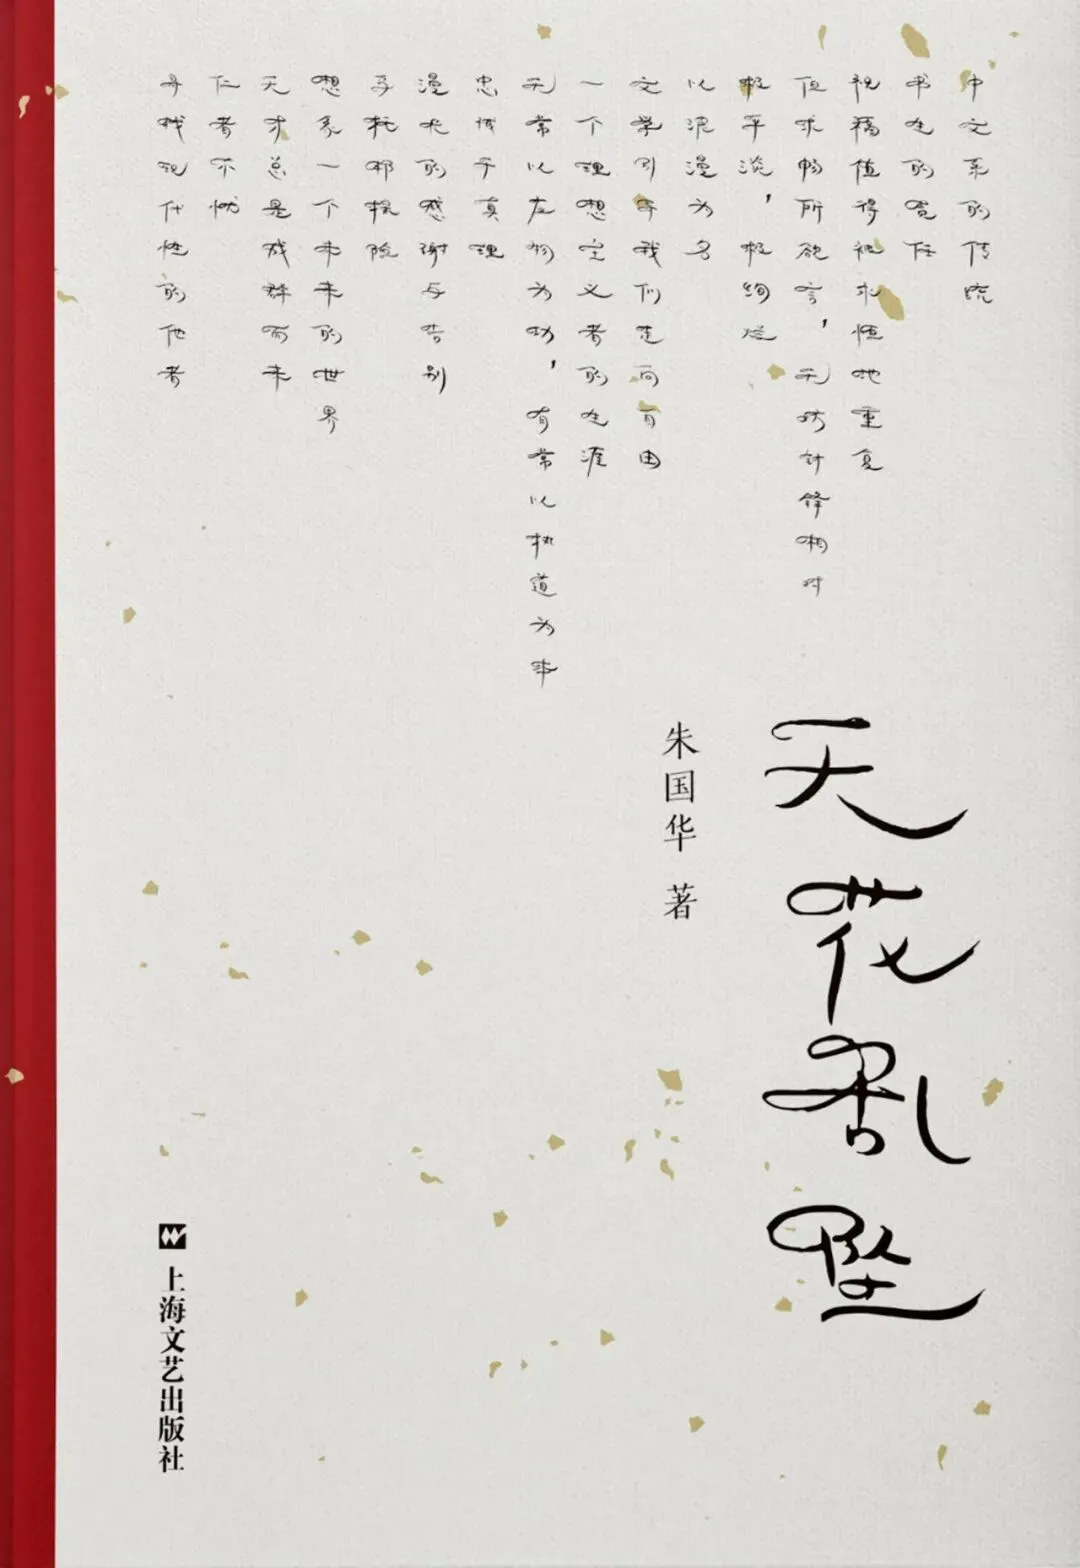 中文系的传统
书生的责任
祝福值得被永恒地重复
但求畅所欲言，无妨针锋相对
极平淡，极绚烂
以浪漫为名
文学引导我们走向自由
一个理想主义者的生涯
无常以应物为功，有常以执道为本
忠诚于真理
漫长的感谢与告别
乌托邦探险
想象一个未来的世界
天才总是成群而来
仁者不忧
寻找现代性的他者
天花乱坠
朱国华 著
上海文艺出版社